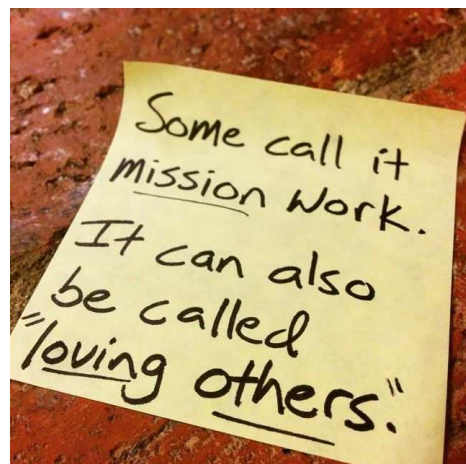 Some call it
mission work.
It can also
be called
"loving others."